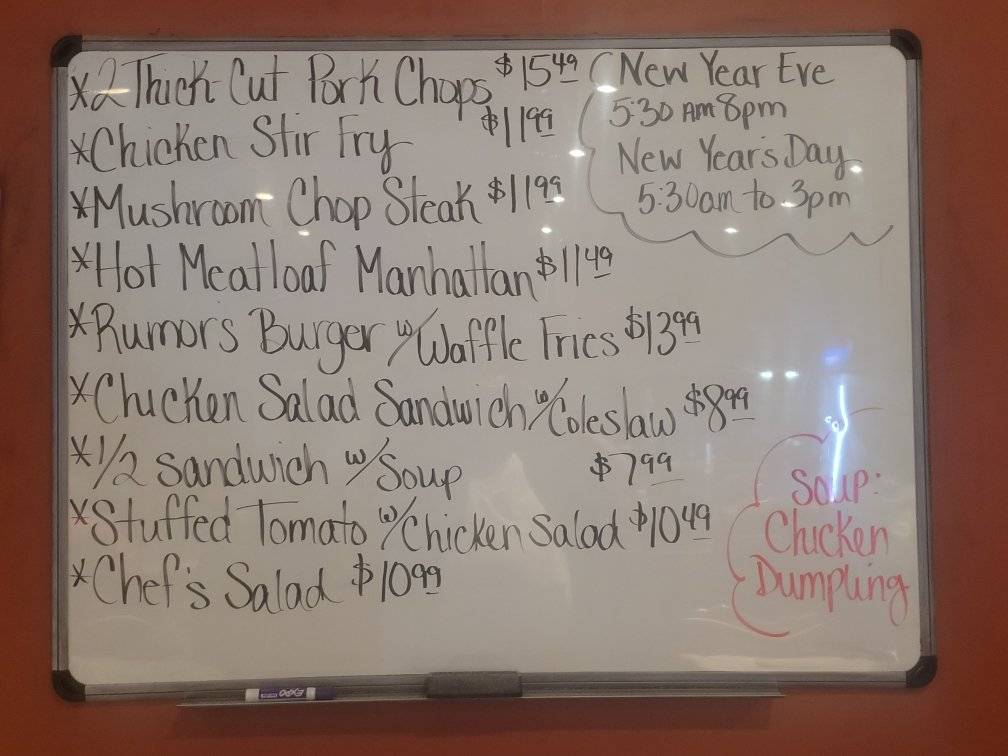 *2 Thick-Cut Pork Chops $15.49
*Chicken Stir Fry $11.99
*Mushroom Chop Steak $11.99
*Hot Meatloaf Manhattan $11.49
*Rumors Burger w/Waffle Fries $13.99
*Chicken Salad Sandwich w/Coleslaw $8.99
*1/2 Sandwich w/Soup $7.99
*Stuffed Tomato w/Chicken Salad $10.49
*Chef's Salad $10.99
New Year Eve
5:30 AM 8pm
New Year's Day
5:30am to 3pm
Soup:
Chicken
Dumpling
EXPO